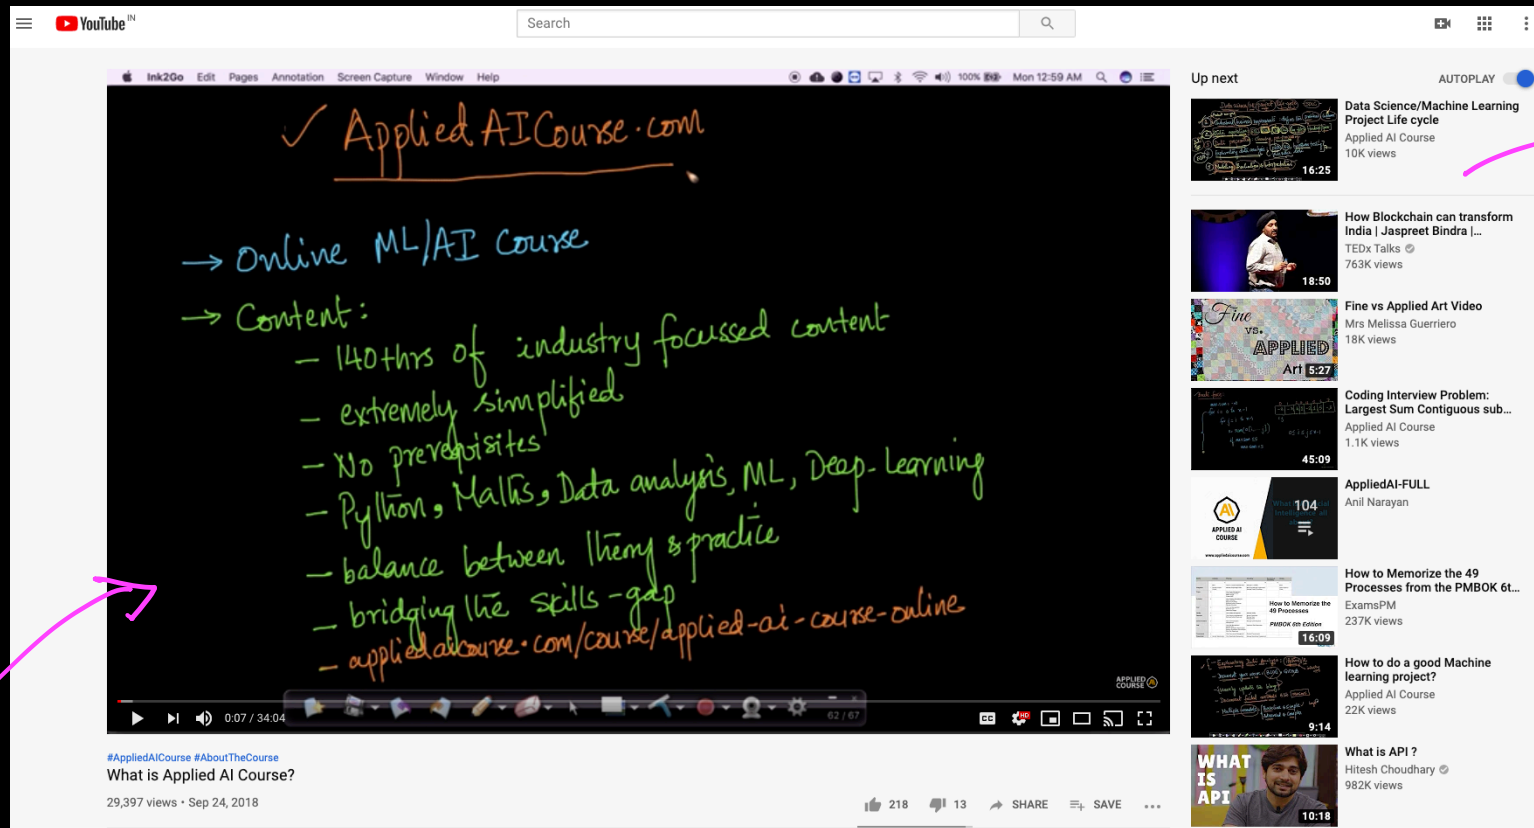 YouTube IN
Search
Ink2Go Edit Pages Annotation Screen Capture Window Help
100% Mon 12:59 AM
✓ AppliedAICourse.com
→ Online ML/AI Course
→ Content:
- 140+hrs of industry focussed content
- extremely simplified
- No prerequisites
- Python, Maths, Data analysis, ML, Deep-Learning
- balance between theory & practice
- bridging the skills-gap
- appliedaicourse.com/course/applied-ai-course-online
APPLIED
COURSE
62 / 67
0:07 / 34:04
CC
HD
#AppliedAICourse #AboutTheCourse
What is Applied AI Course?
29,397 views • Sep 24, 2018
218 13 SHARE SAVE
Up next
AUTOPLAY
16:25
Data Science/Machine Learning
Project Life cycle
Applied AI Course
10K views
18:50
How Blockchain can transform
India | Jaspreet Bindra |...
TEDx Talks
763K views
Fine
vs.
APPLIED
Art
5:27
Fine vs Applied Art Video
Mrs Melissa Guerriero
18K views
45:09
Coding Interview Problem:
Largest Sum Contiguous sub...
Applied AI Course
1.1K views
APPLIED AI
COURSE
www.appliedaicourse.com
104
AppliedAI-FULL
Anil Narayan
How to Memorize the
49 Processes
PMBOK 6th Edition
16:09
How to Memorize the 49
Processes from the PMBOK 6t...
ExamsPM
237K views
9:14
How to do a good Machine
learning project?
Applied AI Course
22K views
WHAT
IS
API
10:18
What is API ?
Hitesh Choudhary
982K views